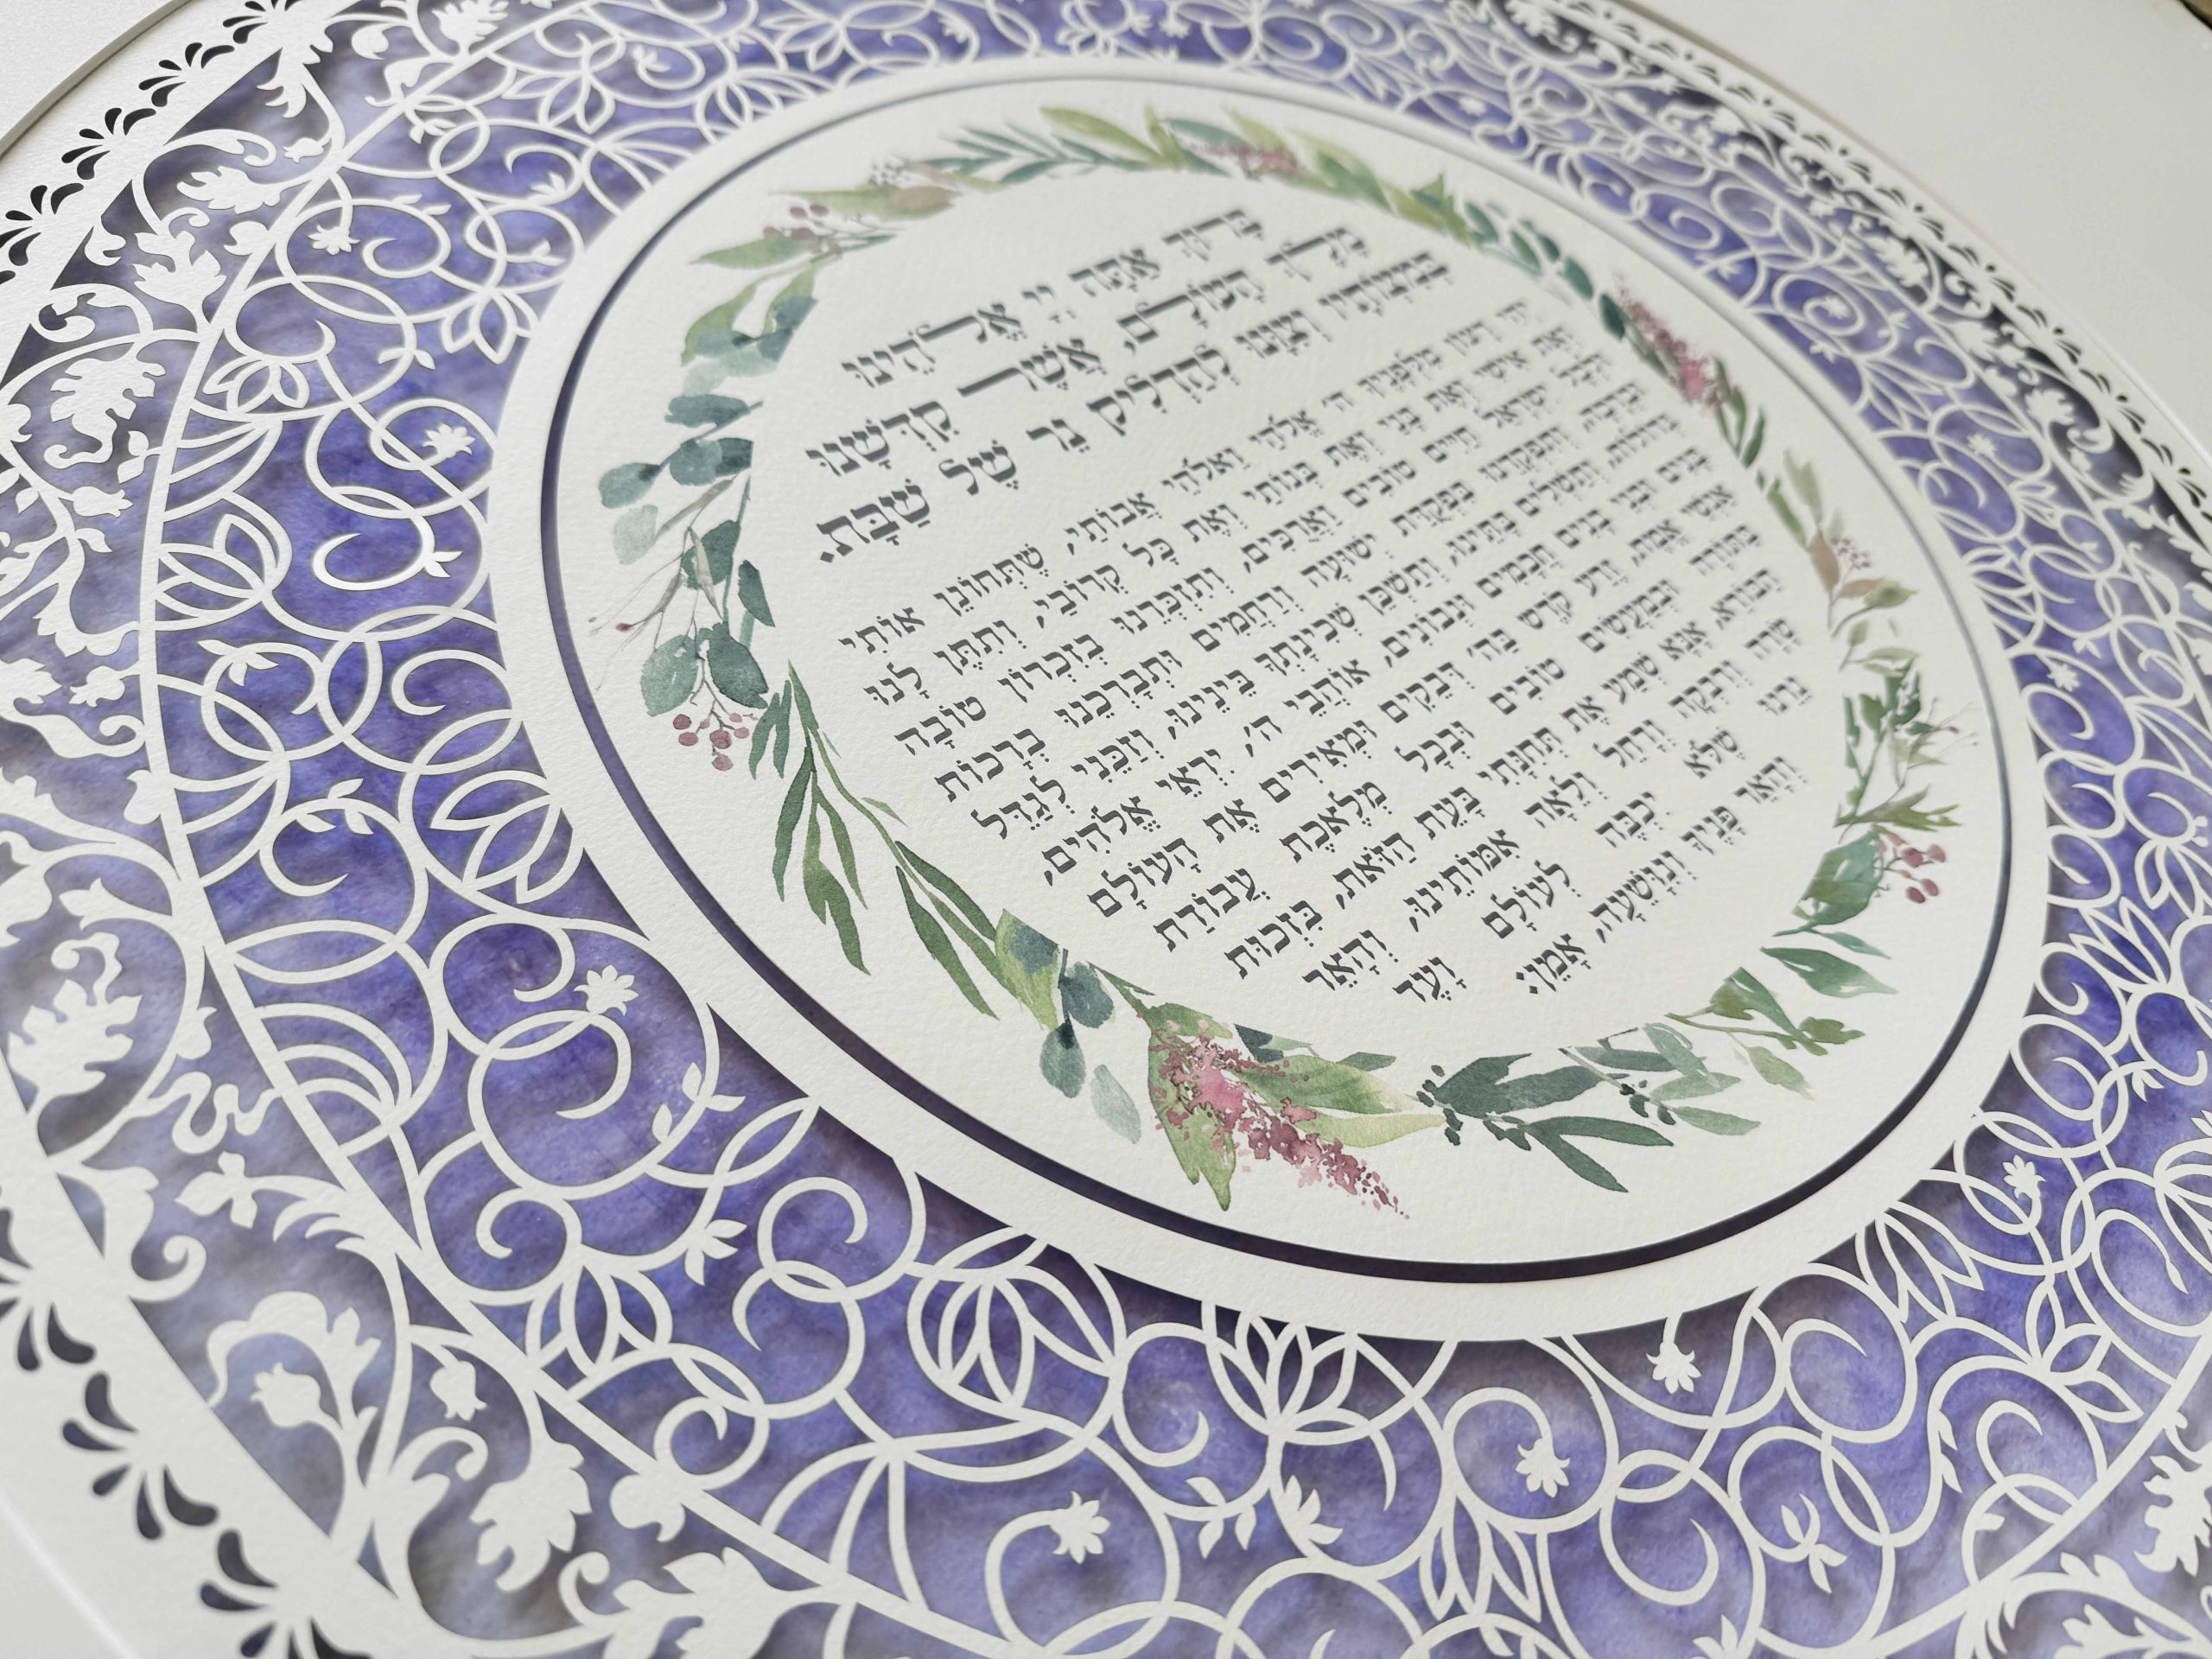 בָּרוּךְ אַתָּה יְיָ אֱלֹהֵינוּ
מֶלֶךְ הָעוֹלָם, אֲשֶׁר קִדְּשָׁנוּ
בְּמִצְוֹתָיו וְצִוָּנוּ לְהַדְלִיק נֵר שֶׁל שַׁבָּת.
יְהִי רָצוֹן מִלְּפָנֶיךָ ה' אֱלֹהַי וֵאלֹהֵי אֲבוֹתַי, שֶׁתְּחוֹנֵן אוֹתִי
וְאֶת אִישִׁי וְאֶת בָּנַי וְאֶת בְּנוֹתַי וְאֶת כָּל קְרוֹבַי, וְתִתֶּן לָנוּ
וּלְכָל יִשְׂרָאֵל חַיִּים טוֹבִים וַאֲרֻכִּים, וְתִזְכְּרֵנוּ בְּזִכְרוֹן טוֹבָה
וּבְרָכָה, וְתִפְקְדֵנוּ בִּפְקֻדַּת יְשׁוּעָה וְרַחֲמִים וּתְבָרְכֵנוּ בְּרָכוֹת
גְּדוֹלוֹת, וְתַשְׁלִים בָּתֵּינוּ, וְתַשְׁכֵּן שְׁכִינָתְךָ בֵּינֵינוּ, וְזַכֵּנִי לְגַדֵּל
בָּנִים וּבְנֵי בָנִים חֲכָמִים וּנְבוֹנִים, אוֹהֲבֵי ה', יִרְאֵי אֱלֹהִים,
אַנְשֵׁי אֱמֶת, זֶרַע קֹדֶשׁ בַּה' דְּבֵקִים וּמְאִירִים אֶת הָעוֹלָם
בְּתוֹרָה וּבְמַעֲשִׂים טוֹבִים וּבְכָל מְלֶאכֶת עֲבוֹדַת
הַבּוֹרֵא, אָנָּא שְׁמַע אֶת תְּחִנָּתִי בָּעֵת הַזֹּאת, בִּזְכוּת
שָׂרָה וְרִבְקָה וְרָחֵל וְלֵאָה אִמּוֹתֵינוּ, וְהָאֵר
נֵרֵנוּ שֶׁלֹּא יִכְבֶּה לְעוֹלָם וָעֶד
וְהָאֵר פָּנֶיךָ וְנִוָּשֵׁעָה, אָמֵן: